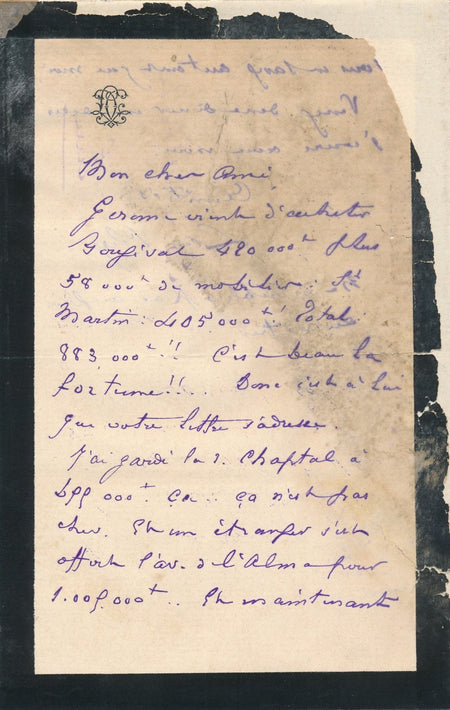 Mon cher Ami
Gerome vient d'acheter
Bougival 420 000ᶠ plus
58 000ᶠ de mobilier. Sᵗ
Martin : 405 000ᶠ! Total :
883,000ᶠ!! C'est beau la
fortune!!.. Donc c'est à lui
que votre lettre s'adresse.
J'ai gardé la r. Chaptal à
499 000ᶠ. Ça.. ça n'est pas
cher. Et un étranger s'est
offert l'av. de l'Alma pour
1.005,000ᶠ.. Et maintenant